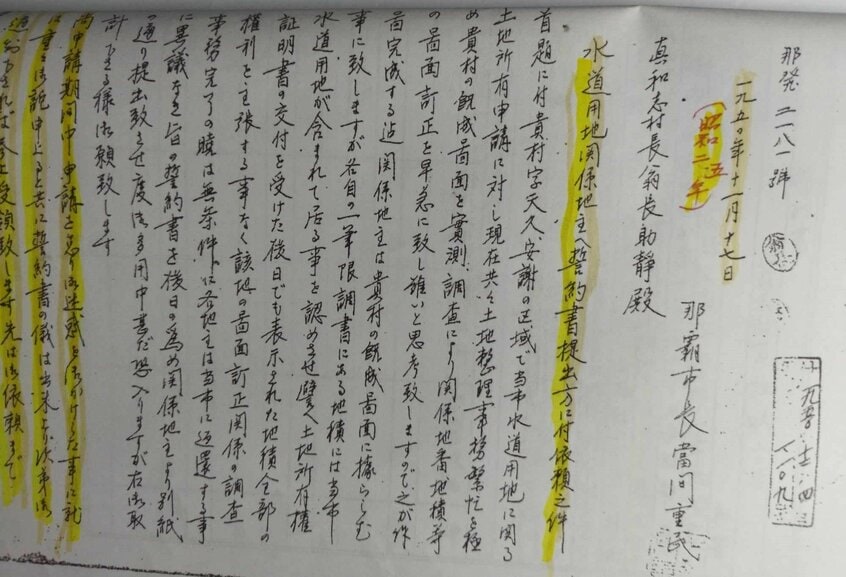 那発二一八一號
一九五〇年十一月十七日
(昭和二五年)
那覇市長當間重民
真和志村長翁長助静殿
水道用地関係地主へ誓約書提出方に付依頼之件
首題に付貴村字天久、安謝の区域で当市水道用地に関る
土地所有申請に対し現在共々土地整理事務繁忙を極
め貴村の既成畐面を實測、調査により関係地番地積等
の畐面訂正を早急に致し難いと思考致しますので之が作
畐完成する迠関係地主は貴村の既成畐面に據らしむ
事に致しますが各自の一筆限調書にある地積には当市
水道用地が含まれて居る事を認めさせ譬へ土地所有権
証明書の交付を受けた後日でも表示された地積全部の
権利を主張する事なく該地の畐面訂正関係の調査
事務完了の曉は無条件に各地主は当市に返還する事
に異議なき旨の誓約書を後日の為め関係地主より別紙
の通り提出致させ度御多用中甚だ恐入りますが右御取
計できる様御願致します
尚申請期間中申請を御迷惑を御かけした事に就
は重々御詫申上ると共に誓約書の儀は出来より次第御
通知できれば参上受領致します先は御依頼まで